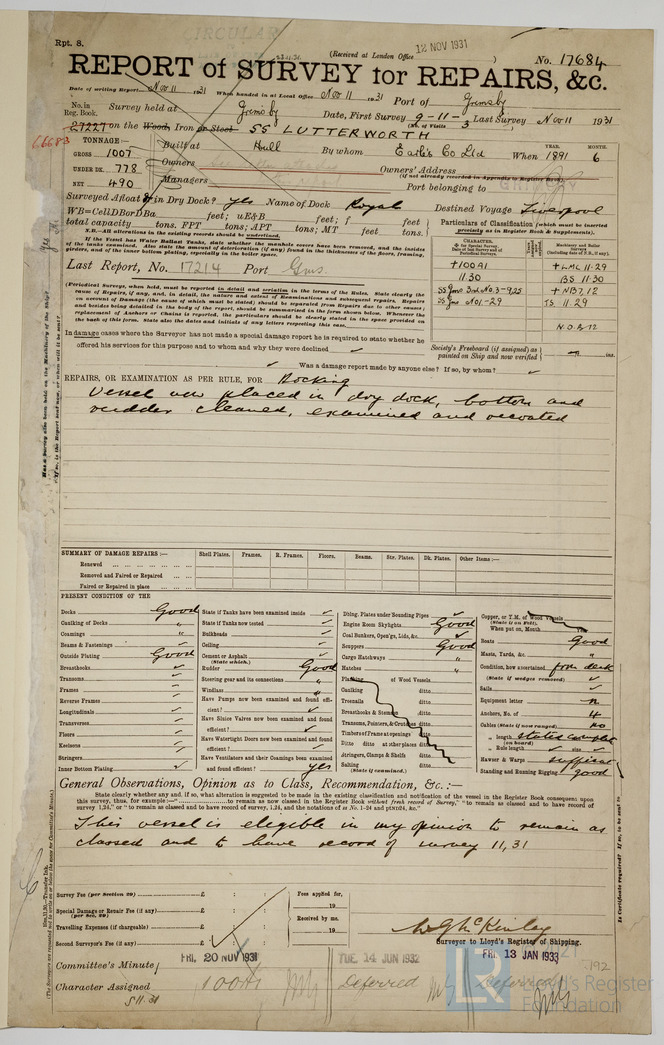 CIRCULAR
Rpt. 8.
(Received at London Office 12 NOV 1931 )
No. 17684
REPORT of SURVEY for REPAIRS, &c.
Date of writing Report Nov 11 1931 When handed in at Local Office Nov 11 1931 Port of Grimsby
No. in Reg. Book. Survey held at Grimsby Date, First Survey 9-11- Last Survey Nov 11 1931
(No. of Visits 3
27227 on the Wood, Iron or Steel SS LUTTERWORTH
66683
TONNAGE:—
GROSS 1007
UNDER DK. 778
NET 490
Built at Hull By whom Earle's Co Ltd When 1891 6
YEAR. MONTH.
Owners Owners' Address
(if not already recorded in Appendix to Register Book).
Managers Port belonging to GRIMSBY
Surveyed Afloat or in Dry Dock? yes Name of Dock Royal Destined Voyage Liverpool
WB=CellDBorDBa feet; uE&B feet; f feet
total capacity tons. FPT tons; APT tons; MT feet tons.
N.B.—All alterations in the existing records should be underlined.
If the Vessel has Water Ballast Tanks, state whether the manhole covers have been removed, and the insides of the tanks examined. Also state the amount of deterioration (if any) found in the thicknesses of the floors, framing, girders, and of the inner bottom plating, especially in the boiler space.
Last Report, No. 17214 Port Gms.
Particulars of Classification (which must be inserted precisely as in Register Book & Supplements).
+100A1 +LMC 11-29
11.30 BS 11.30
SS Gms 3rd No.3-9,25 +NB7,12
SS Gms No1-29 TS 11.29
N.O.B 12
(Periodical Surveys, when held, must be reported in detail and seriatim in the terms of the Rules. State clearly the cause of Repairs, if any, and, in detail, the nature and extent of Examinations and subsequent repairs. Repairs on account of Damage (the cause of which must be stated) should be separated from Repairs due to other causes; and besides being detailed in the body of the report, should be summarized in the form shown below. Whenever the replacement of Anchors or Chains is reported, the particulars should be clearly stated in the space provided on the back of this form. State also the dates and initials of any letters respecting this case.
In damage cases where the Surveyor has not made a special damage report he is required to state whether he offered his services for this purpose and to whom and why they were declined ✓
Society's Freeboard (if assigned) as painted on Ship and now verified ins.
Was a damage report made by anyone else? If so, by whom? ✓
REPAIRS, OR EXAMINATION AS PER RULE, FOR Docking
Vessel now placed in dry dock, bottom and
rudder cleaned, examined and recoated
SUMMARY OF DAMAGE REPAIRS:— Shell Plates. Frames. R. Frames. Floors. Beams. Str. Plates. Dk. Plates. Other Items:—
Renewed
Removed and Faired or Repaired
Faired or Repaired in place
PRESENT CONDITION OF THE
Decks Good
Caulking of Decks "
Coamings "
Beams & Fastenings ✓
Outside Plating Good
Breasthooks ✓
Transoms ✓
Frames ✓
Reverse Frames ✓
Longitudinals ✓
Transverses ✓
Floors ✓
Keelsons ✓
Stringers ✓
Inner Bottom Plating ✓
State if Tanks have been examined inside ✓
State if Tanks now tested ✓
Bulkheads ✓
Ceiling ✓
Cement or Asphalt ✓
(State which.)
Rudder Good
Steering gear and its connections "
Windlass "
Have Pumps now been examined and found efficient? ✓
Have Sluice Valves now been examined and found efficient? ✓
Have Watertight Doors now been examined and found efficient? ✓
Have Ventilators and their Coamings been examined and found efficient? yes
Dblng. Plates under Sounding Pipes ✓
Engine Room Skylights Good
Coal Bunkers, Open'gs, Lids, &c. ✓
Scuppers Good
Cargo Hatchways "
Hatches "
Planking of Wood Vessels
Caulking ditto
Treenails ditto
Breasthooks & Stemson ditto
Transoms, Pointers, & Crutches ditto
Timbers of Frame at openings ditto
Ditto ditto at other places ditto
Stringers, Clamps & Shelfs ditto
Salting ditto
(State if examined.)
Copper, or Y.M. of Wood Vessels
(State if on Felt).
When put on, Month
Boats Good
Masts, Yards, &c. "
Condition, how ascertained from deck
(State if wedges removed) ✓
Sails ✓
Equipment letter n
Anchors, No. of 4
Cables (State if now ranged) no
" length stated complete
(on board)
" Rule length ✓ size ✓
Hawser & Warps sufficient
Standing and Running Rigging good
General Observations, Opinion as to Class, Recommendation, &c.:—
This vessel is eligible in my opinion to remain as
classed and to have record of survey 11,31
Survey Fee (per Section 29) £ : :
Special Damage or Repair Fee (if any) £ : :
(per Sec. 29)
Travelling Expenses (if chargeable) £ : :
Second Surveyor's Fee (if any) £ : :
Fees applied for, 19
Received by me. 19
W G McKinley
Surveyor to Lloyd's Register of Shipping.
Committee's Minute
FRI. 20 NOV 1931
TUE 14 JUN 1932
FRI. 13 JAN 1933
Character Assigned 100A1
Deferred
Deferred
S 11.31
LR
Lloyd's Register
Foundation